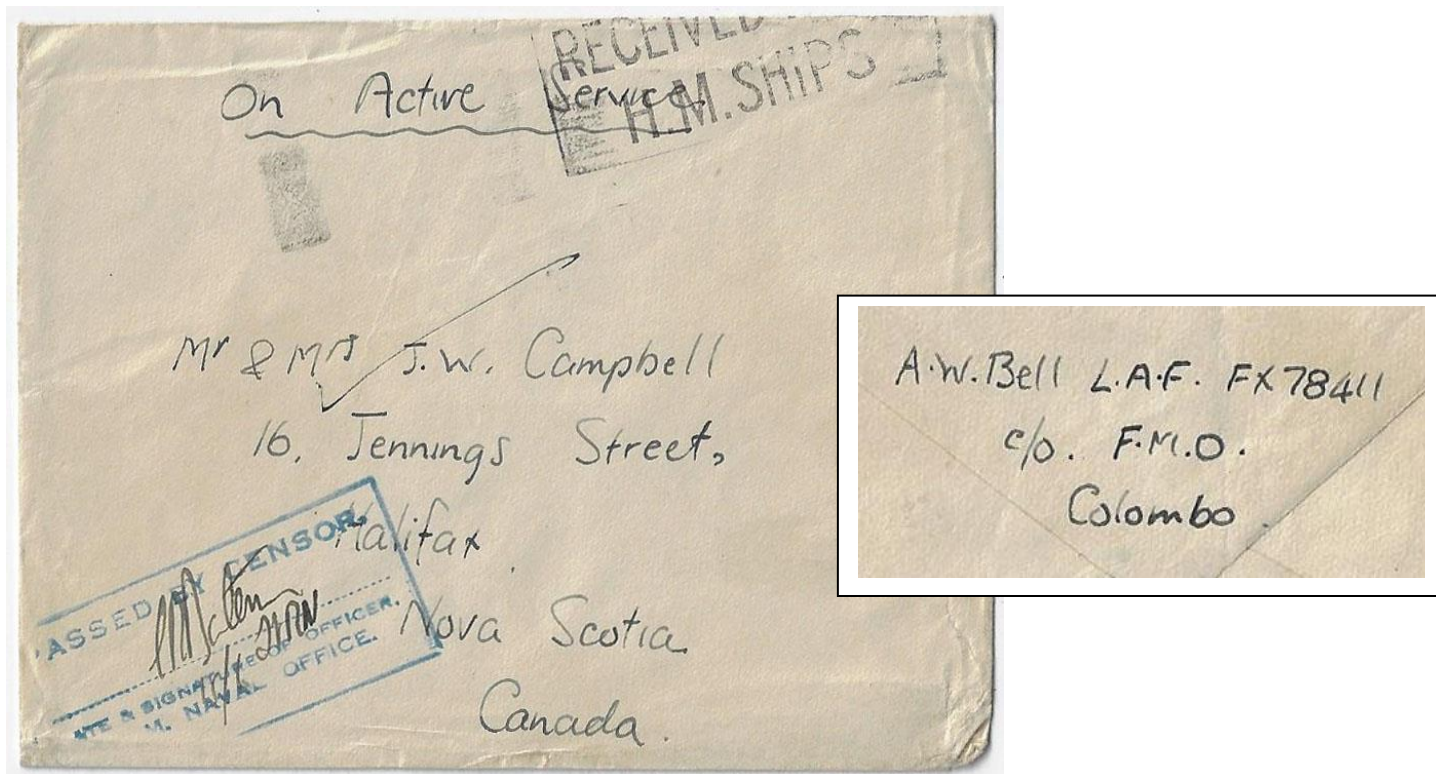 RECEIVED
H.M. SHIPS
On Active Service.
Mr & Mrs J.W. Campbell
16, Jennings Street,
Halifax
Nova Scotia
Canada.
PASSED BY CENSOR.
ATE & SIGNATURE OF OFFICER.
M. NAVAL OFFICE.
A.W. Bell L.A.F. FX 78411
c/o. F.M.O.
Colombo.